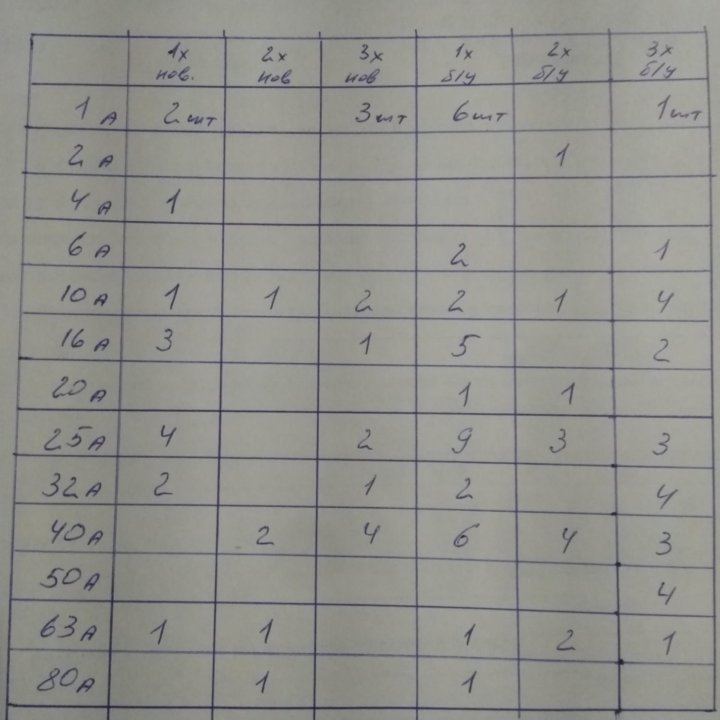 1х нов. 2х нов 3х нов 1х б/у 2х б/у 3х б/у
1 А 2 шт 3 шт 6 шт 1 шт
2 А 1
4 А 1
6 А 2 1
10 А 1 1 2 2 1 4
16 А 3 1 5 2
20 А 1 1
25 А 4 2 9 3 3
32 А 2 1 2 4
40 А 2 4 6 4 3
50 А 4
63 А 1 1 1 2 1
80 А 1 1